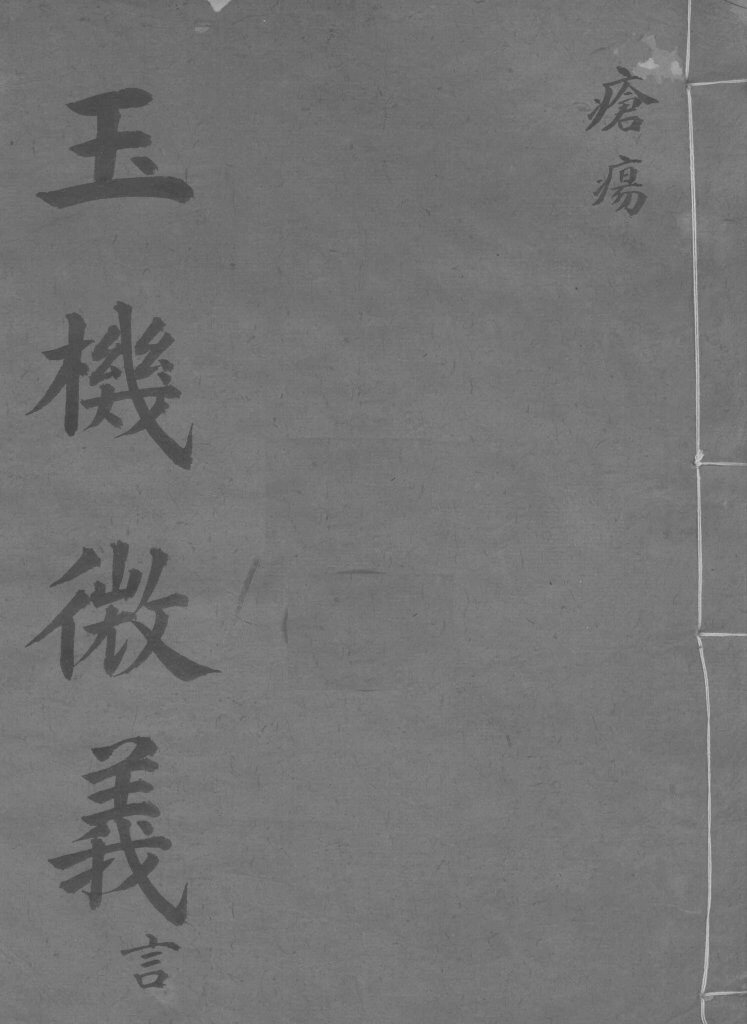 瘡瘍
玉機微義
言